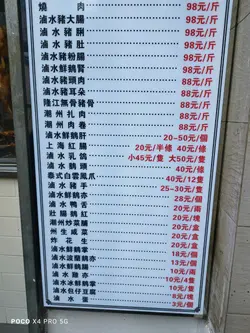 燒肉 98元/斤
滷水豬大腸 98元/斤
滷水豬脷 98元/斤
滷水豬肚 98元/斤
滷水豬粉腸 98元/斤
滷水鮮鵝腎 98元/斤
滷水豬頭肉 88元/斤
滷水豬耳朵 88元/斤
隆江無骨豬骨 88元/斤
潮州扎肉 88元/斤
潮州肉卷 88元/斤
滷水鮮鵝肝 20~50元/個
上海紅腸 20元/半條 40元/條
滷水乳鴿 小45元/隻 大50元/隻
滷水鵝頸 40元/條
泰式白雲鳳爪 40元/12隻
滷水豬手 25~30元/隻
滷水鮮鵝亦 28元/個
滷水鴨舌 20元/兩
壯腸鵝紅 20元/磚
潮州炒菜脯 20元/盒
州生咸菜 20元/盒
炸花生 20元/盒
滷水鮮鵝掌 18元/個
滷水波蘭鵝亦 13元/個
滷水鮮鵝腸 10元/兩
滷水雞亦 10元/4隻
滷水鮮鵝掌 10元/隻
滷水包仔豆腐 8元/塊
滷水蛋 3元/個
POCO X4 PRO 5G